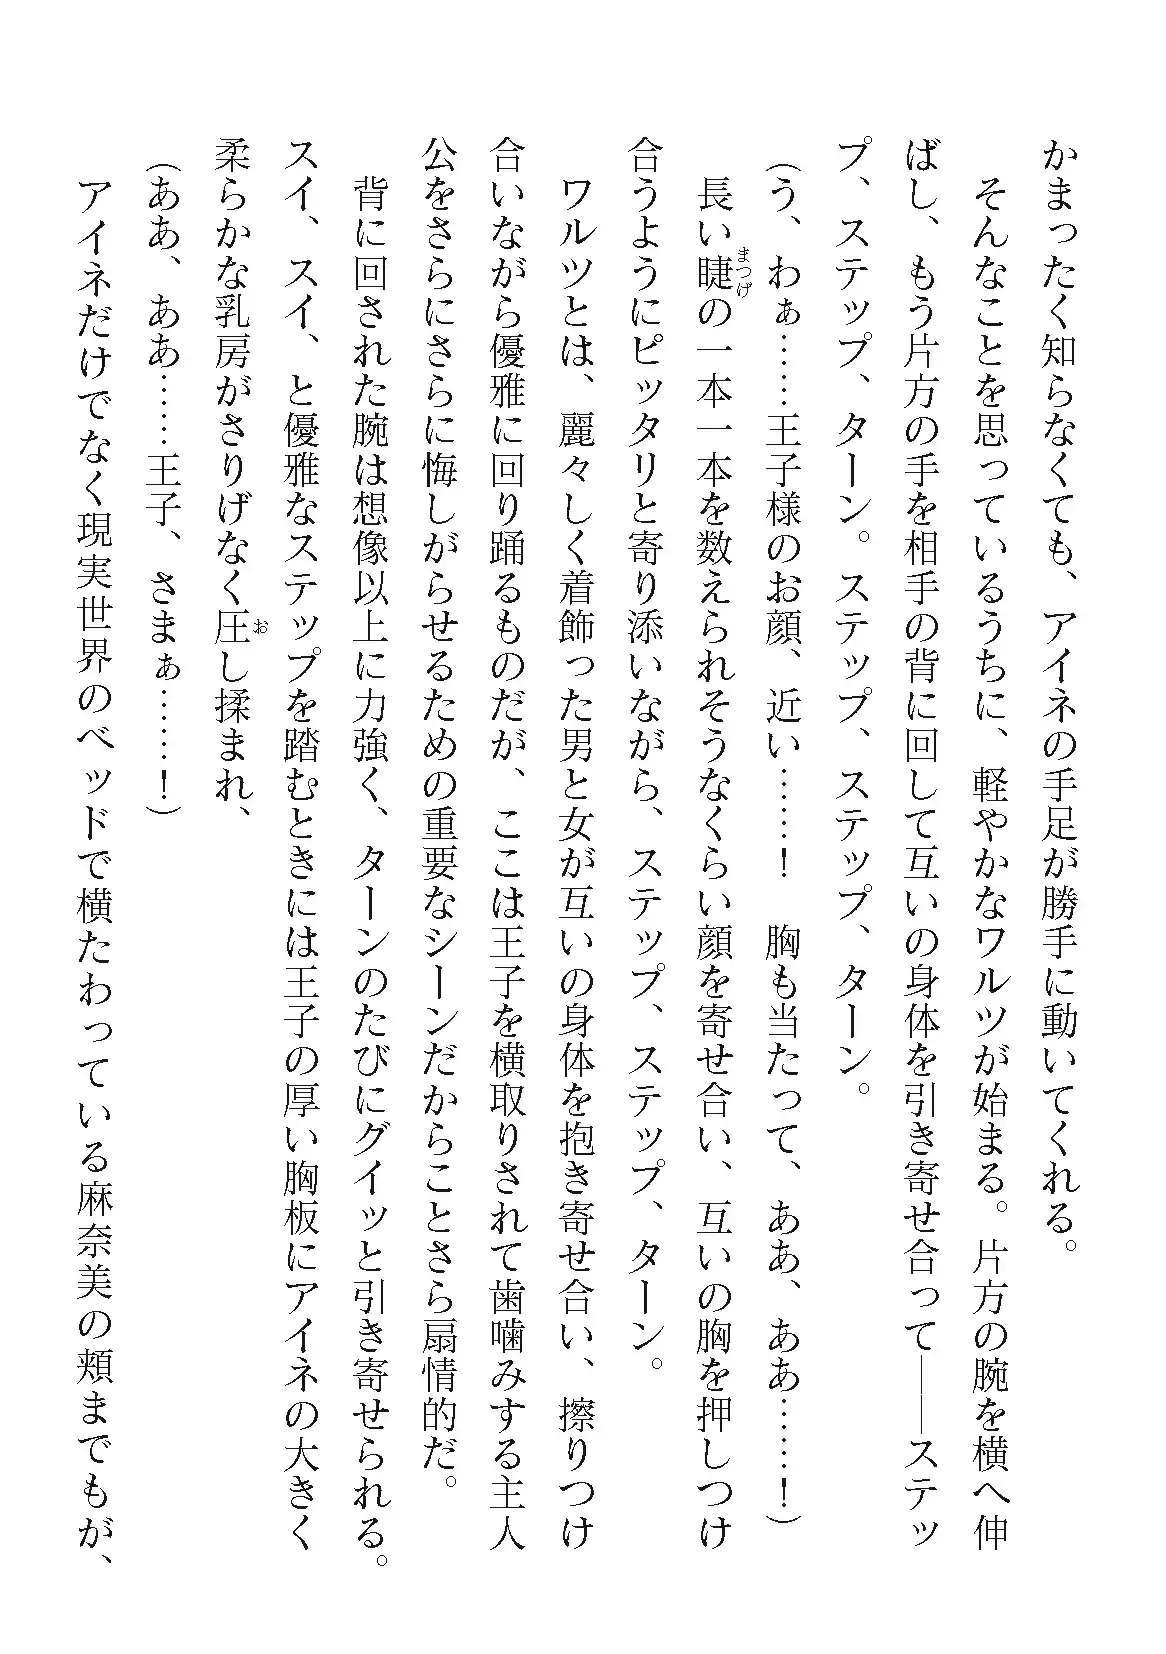 かまったく知らなくても、アイネの手足が勝手に動いてくれる。
そんなことを思っているうちに、軽やかなワルツが始まる。片方の腕を横へ伸
ばし、もう片方の手を相手の背に回して互いの身体を引き寄せ合って――ステッ
プ、ステップ、ターン。ステップ、ステップ、ターン。
（う、わぁ……王子様のお顔、近い……！　胸も当たって、ああ、ああ……！）
長い睫まつげの一本一本を数えられそうなくらい顔を寄せ合い、互いの胸を押しつけ
合うようにピッタリと寄り添いながら、ステップ、ステップ、ターン。
ワルツとは、麗々しく着飾った男と女が互いの身体を抱き寄せ合い、擦りつけ
合いながら優雅に回り踊るものだが、ここは王子を横取りされて歯噛みする主人
公をさらにさらに悔しがらせるための重要なシーンだからことさら扇情的だ。
背に回された腕は想像以上に力強く、ターンのたびにグイッと引き寄せられる。
スイ、スイ、と優雅なステップを踏むときには王子の厚い胸板にアイネの大きく
柔らかな乳房がさりげなく圧おし揉まれ、
（ああ、ああ……王子、さまぁ……！）
アイネだけでなく現実世界のベッドで横たわっている麻奈美の頬までもが、